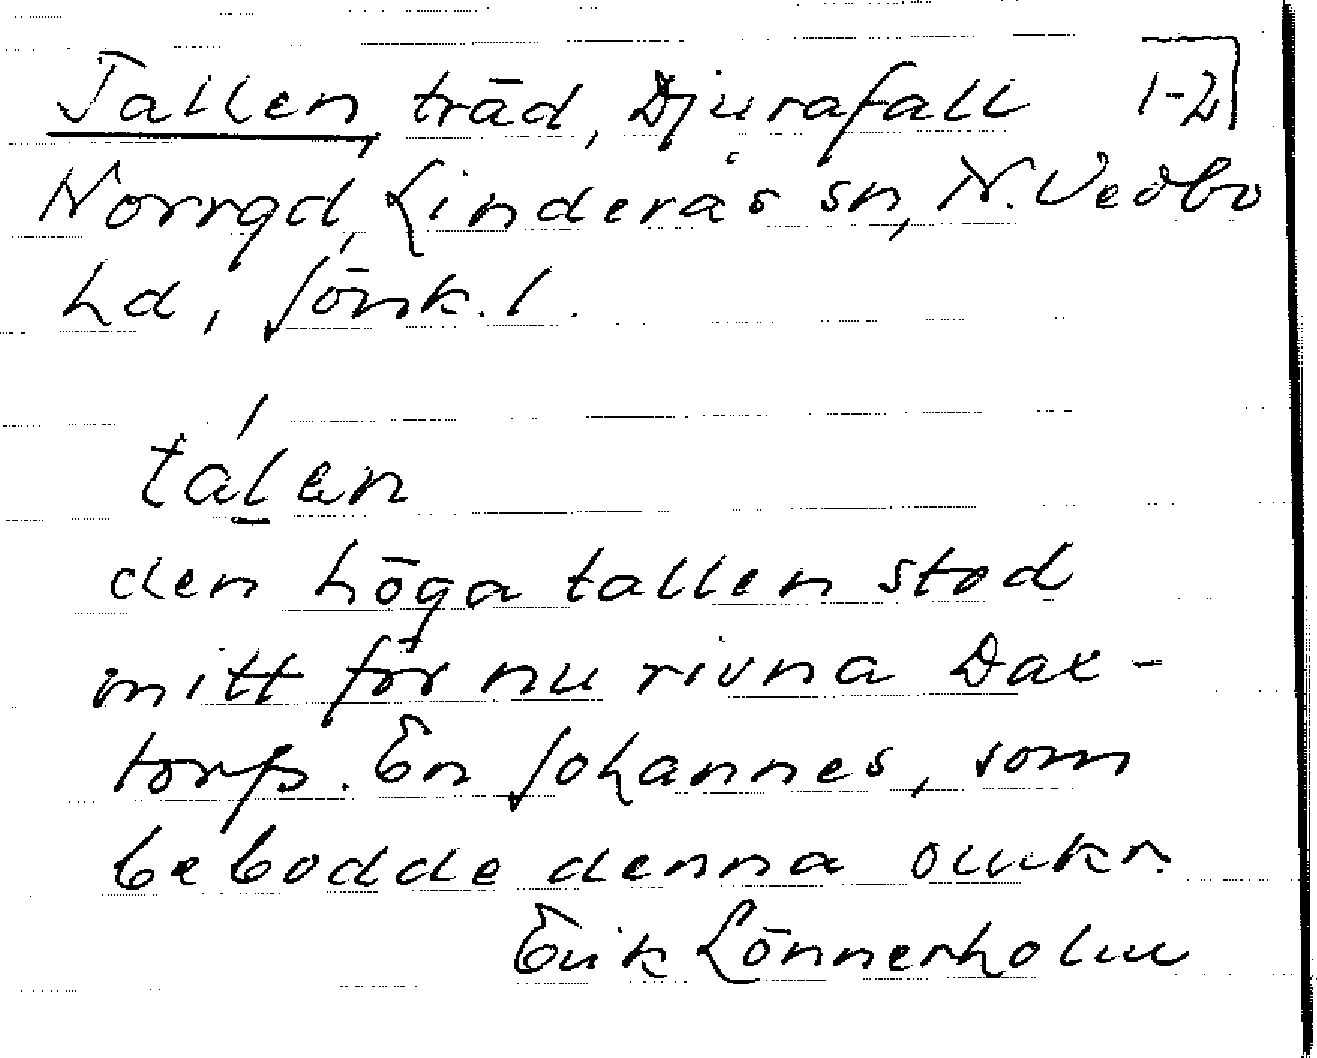 Tallen, träd, Djurafall 1-2
Norrgd, Linderås sn, N. Vedbo
hd, Jönk. l.
tálen
den höga tallen stod
mitt för nu rivna Dax-
torp. En Johannes, som
bebodde denna omkr.
Erik Lönnerholm